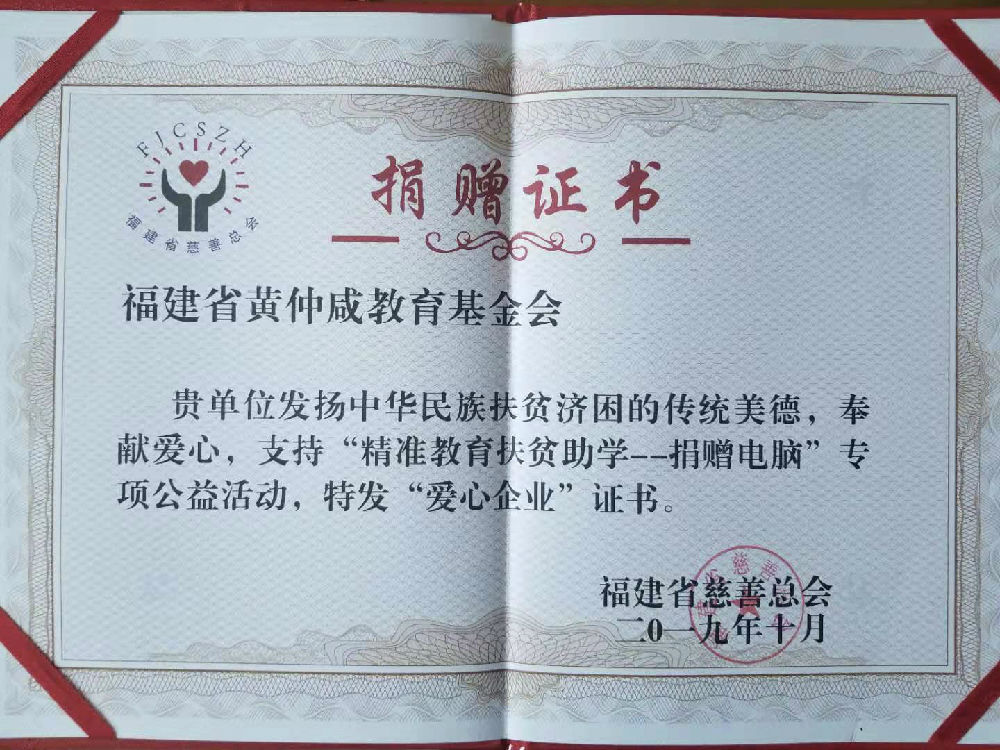 FJCSZH
捐赠证书
福建省慈善总会
福建省黄仲咸教育基金会
贵单位发扬中华民族扶贫济困的传统美德，奉
献爱心，支持“精准教育扶贫助学--捐赠电脑”专
项公益活动，特发“爱心企业”证书。
福建省慈善总会
二0一九年十月